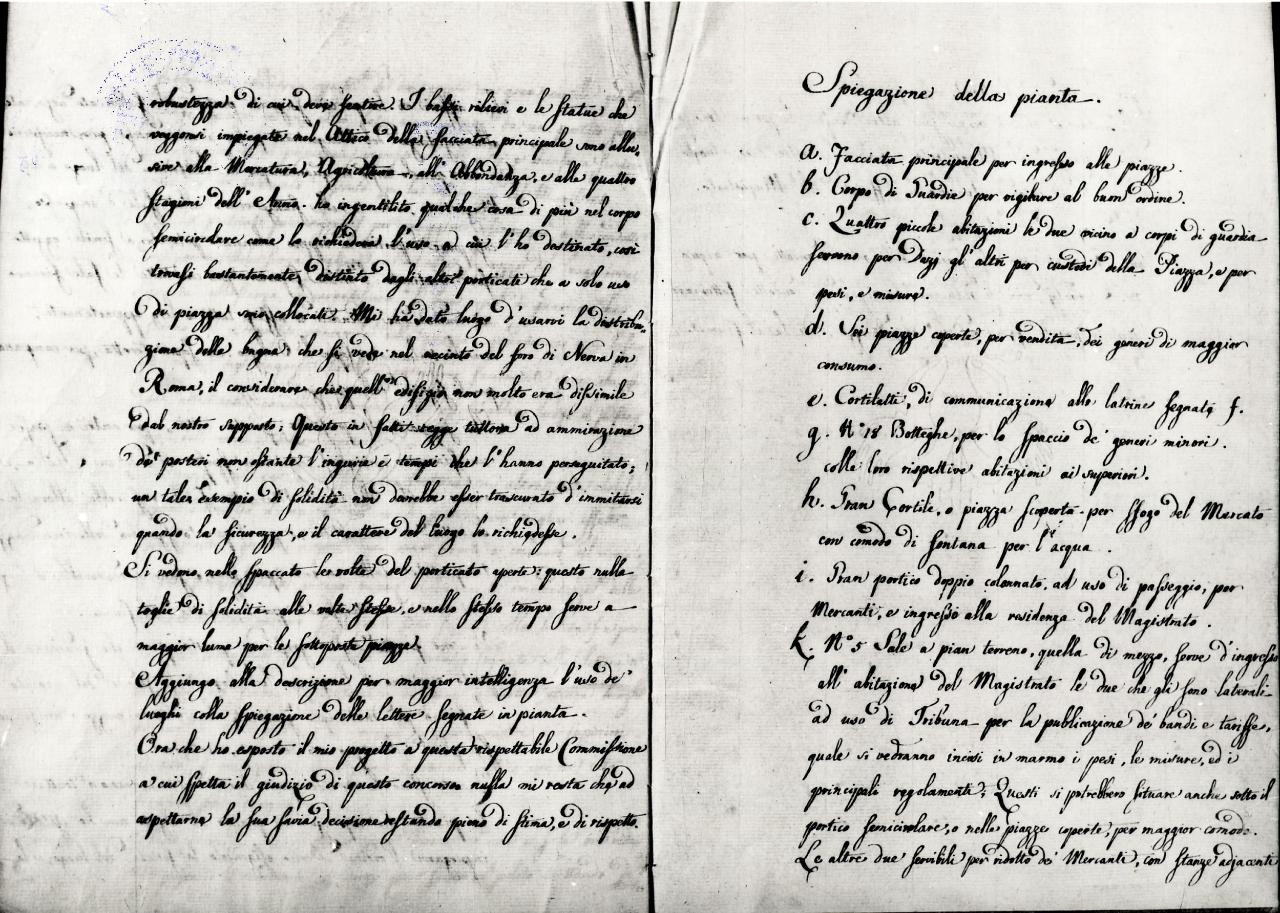 robustezza di cui deve sentire. I bassi rilievi e le statue che
veggonsi impiegate nel Attico della facciata principale sono allu-
sive alla Mercatura, Agricoltura, all'Abbondanza, e alle quattro
stagioni dell'Anno. ho ingentilito qualche cosa di più nel corpo
semicircolare come lo richiedeva l'uso a cui l'ho destinato, così
trovasi bastantemente distinto dagli altri porticati che a solo uso
di piazza sono collocati. Mi ha dato luogo d'usarvi la distribu-
zione delle bugne che si vede nel recinto del foro di Nerva in
Roma, il considerare che quell'edifizio non molto era dissimile
dal nostro supposto; Questo in fatti regge tuttora ad ammirazione
de' posteri non ostante l'ingiuria e tempi che l'hanno perseguitato;
un tale esempio di solidità non dovrebbe esser trascurato d'immitarsi
quando la sicurezza, e il carattere del luogo lo richiedesse.
Si vedono nello spaccato le volte del porticato aperte; questo nulla
toglie di solidità alle volte stesse, e nello stesso tempo serve a
maggior lume per le sottoposte piazze.
Aggiungo alla descrizione per maggior intelligenza l'uso de'
luoghi colla spiegazione delle lettere segnate in pianta.
Ora che ho esposto il mio progetto a questa rispettabile Commissione
a cui spetta il giudizio di questo concorso nulla mi resta che ad
aspettarne la sua savia decisione restando pieno di stima, e di rispetto.
Spiegazione della pianta.
a. Facciata principale per ingresso alle piazze.
b. Corpo di Guardia per vigilare al buon ordine.
c. Quattro piccole abitazioni le due vicino a corpi di guardia
servono per Dazj gl'altri per custodi della Piazza, e per
pesi, e misure.
d. Sei piazze coperte, per vendita dei generi di maggior
consumo.
e. Cortiletti, di communicazione alle latrine segnate f.
g. N° 18 Botteghe, per lo spaccio de' generi minori.
colle loro rispettive abitazioni ai superiori.
h. Gran Cortile, o piazza scoperta per sfogo del Mercato
con comodo di fontana per l'acqua.
i. Gran portico doppio colonnato, ad uso di passeggio, per
Mercanti, e ingresso alla residenza del Magistrato.
k. N° 5 Sale a pian terreno, quella di mezzo, serve d'ingresso
all'abitazione del Magistrato le due che gli sono laterali
ad uso di Tribuna per la publicazione de' bandi e tariffe,
quale si vedranno incisi in marmo i pesi, le misure, ed i
principali regolamenti; Questi si potrebbero situare anche sotto il
portico semicirolare, o nelle piazze coperte, per maggior comodo.
Le altre due servibili per ridotto de' Mercanti, con stanze adjacenti